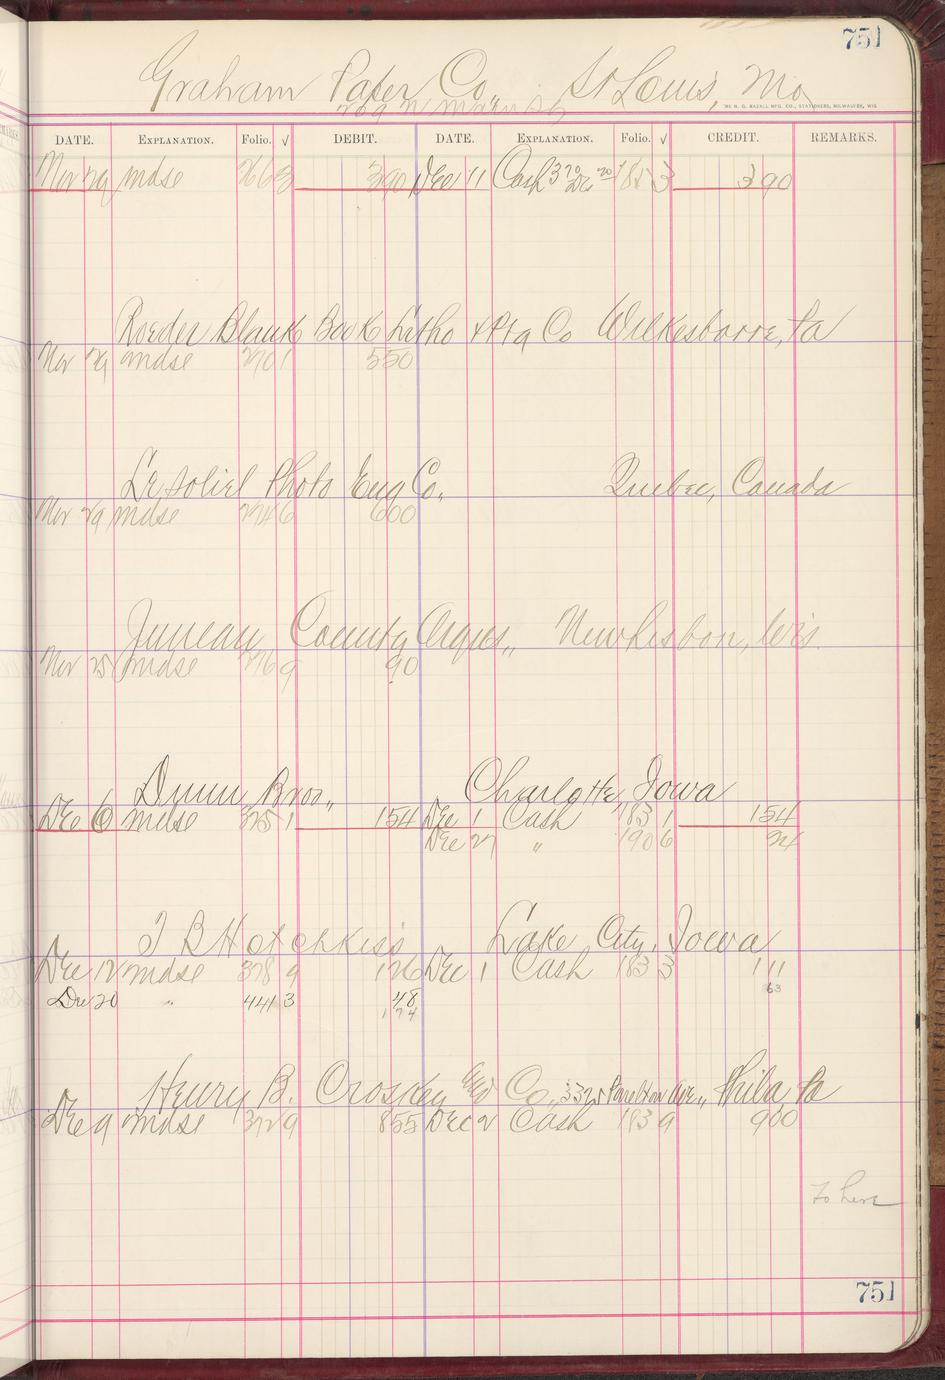 751
Graham Paper Co,, St Louis, Mo
THE H. G. RAZALL MFG. CO., STATIONERS, MILWAUKEE, WIS.
DATE. EXPLANATION. Folio. √ DEBIT. DATE. EXPLANATION. Folio. √ CREDIT. REMARKS.
Nov 29 mdse 266 3 390 Dec 11 Cash 3 70 Dis 20 185 3 3 90
Roeder Blank Book Litho & Ptg Co Wilkesbarre, Pa
Nov 29 mdse 270 1 550
Le Soliel Photo Eng Co,, Quebec, Canada
Nov 29 mdse 274 6 600
Juneau County Argus,, New Lisbon, Wis.
Nov 25 mdse 276 9 90
Dunn Bros,, Charlotte, Iowa
Dec 6 mdse 325 1 154 Dec 1 Cash 183 1 154
Dec 27 " 190 6 24
T B Hotchkiss Lake City, Iowa
Dec 12 mdse 378 9 126 Dec 1 Cash 183 3 1 11
63
Dec 20 " 441 3 48
1 74
Henry B. Croskey Eng Co,, Phila Pa
Dec 9 mdse 372 9 855 Dec 2 Cash 183 9 900
To here
751